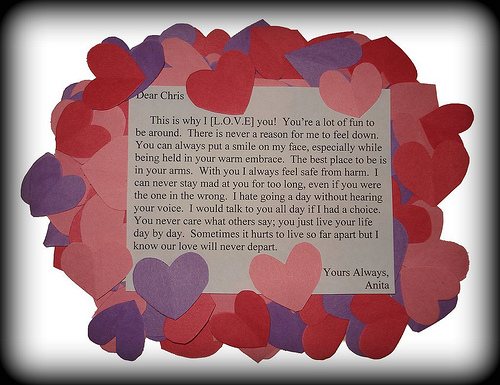 Dear Chris
This is why I [L.O.V.E] you!  You're a lot of fun to
be around.  There is never a reason for me to feel down.
You can always put a smile on my face, especially while
being held in your warm embrace.  The best place to be is
in your arms.  With you I always feel safe from harm.  I
can never stay mad at you for too long, even if you were
the one in the wrong.  I hate going a day without hearing
your voice.  I would talk to you all day if I had a choice.
You never care what others say; you just live your life
day by day.  Sometimes it hurts to live so far apart but I
know our love will never depart.
Yours Always,
Anita